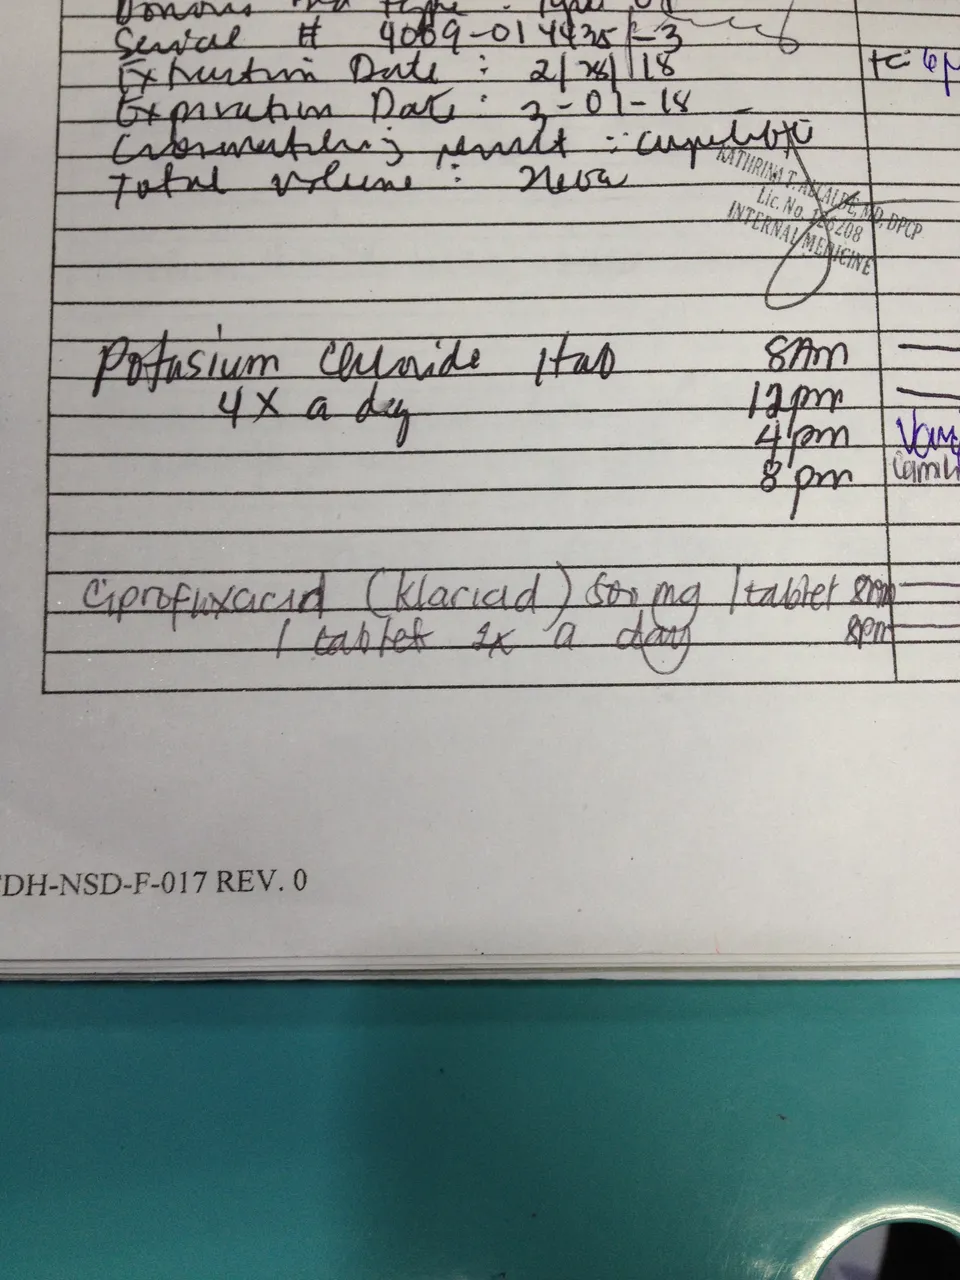 Serial # 4069-014425-3
Extraction Date : 2/28/18
Expiration Date : 3-01-18
Crossmatching result :
Total volume :
KATHRINA T. ALCALDE, MD, DPCP
Lic. No. 126208
INTERNAL MEDICINE
Potasium Chloride 1tab 8Am
4X a day 12pm
4pm
8pm
Ciprofluxacid (Klaricid) 500mg 1tablet 8am
1 tablet 2x a day 8pm
DH-NSD-F-017 REV. 0